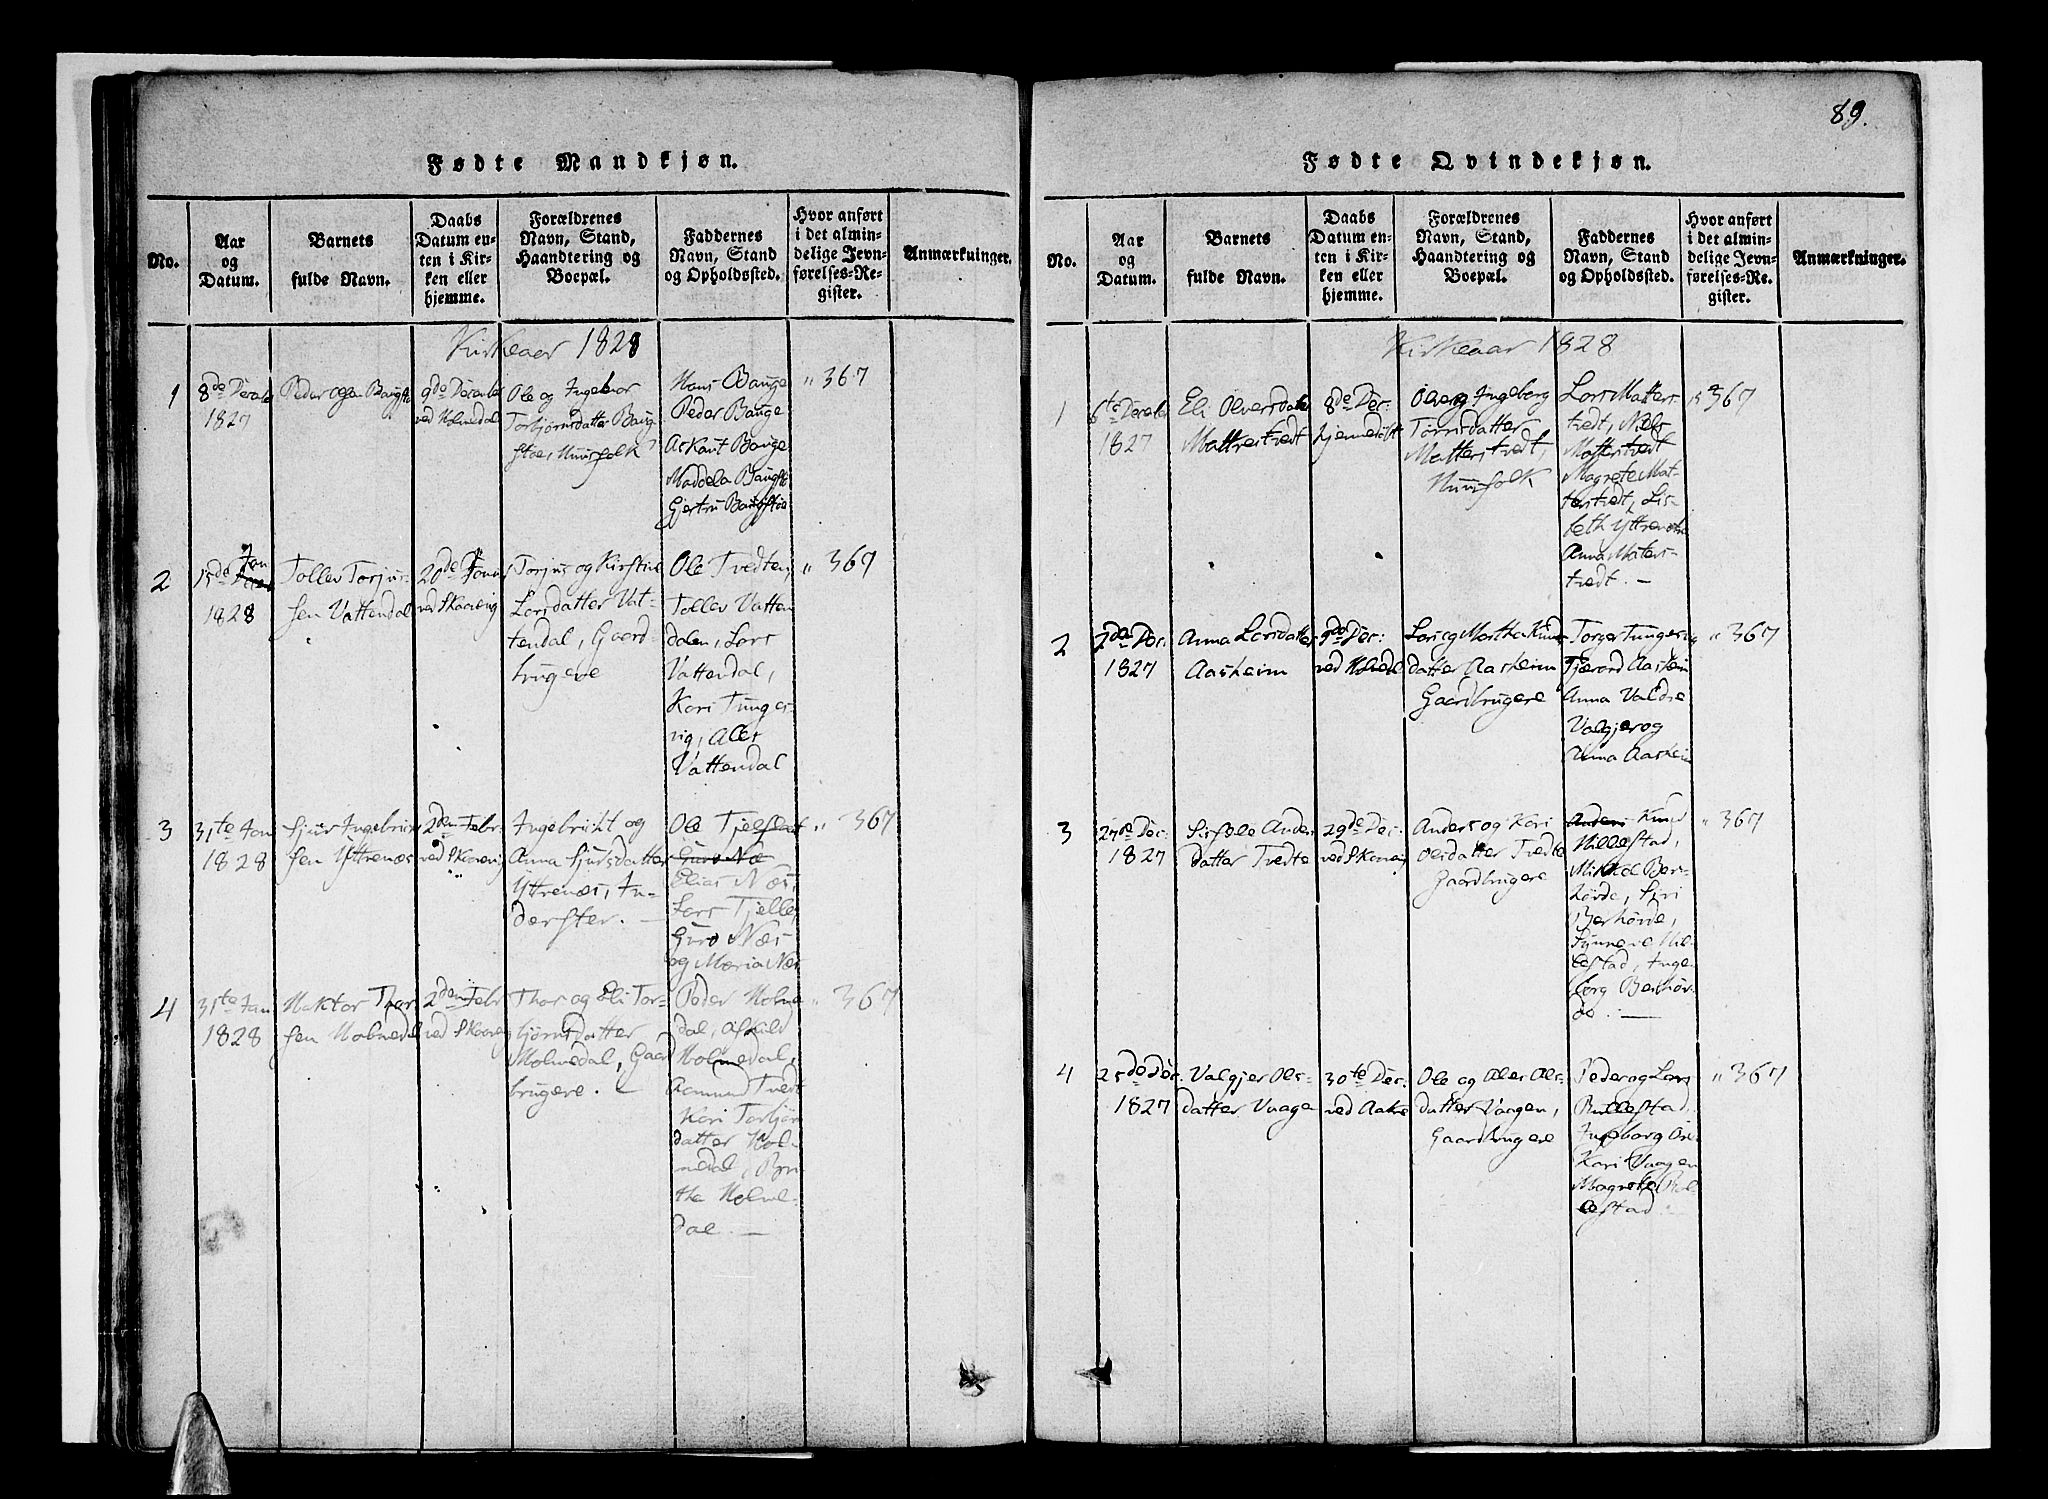 89.
Fødte Mandkjøn.
No.
Aar
og
Datum.
Barnets
fulde Navn.
Daabs
Datum en-
ten i Kir-
ken eller
hjemme.
Forældrenes
Navn, Stand,
Haandtering og
Boepæl.
Faddernes
Navn, Stand
og Opholdssted.
Hvor anført
i det almin-
delige Jevn-
førelses-Re-
gister.
Anmærkninger.
Kirkeaar 1828
1
8de Decembr
1827
Peder Olsen
9de Decembr
ved Holmedal
Ole og Ingebor
Torbjørnsdatter
Huusfolk
Hans Bauge
Peder Bauge
Bauge
Gjertru
" 367
2
15de Jan
1828
Tollev Torjus-
sen Vattendal
20de Janu
ved Skaanevig
Torjus og Kirstine
Larsdatter Vat-
tendal, Gaard-
brugere
Ole Tvedten,
Tollev Vatten
dalen, Lars
Vattendal,
Kari Tunges-
vig, Ales
Vattendal
" 367
3
31te Jan
1828
Sjur Ingebrigt
sen Yttrenæs
2den Febr
ved Skaanevig
Ingebricht og
Anna Sjursdatter
Yttrenæs, In-
derster. —
Ole Tjelflaat
Guro Næ
Elias Næs,
Lars Tjelle
Guro Næs
og Maria Næs
" 367
4
31te Jan
1828
Haktor Thor
sen Holmedal
2den Febr
ved Skaanevig
Thor og Eli Tor-
bjørnsdatter
Holmedal, Gaard
brugere. —
Peder Holme
dal, Askild
Holmedal,
Aamund Tvedt
Kari Torbjørns
datter Hol-
medal, Bri
tha Holme-
dal. —
" 367
Fødte Qvindekjøn.
No.
Aar
og
Datum.
Barnets
fulde Navn.
Daabs
Datum en-
ten i Kir-
ken eller
hjemme.
Forældrenes
Navn, Stand,
Haandtering og
Boepæl.
Faddernes
Navn, Stand
og Opholdssted.
Hvor anført
i det almin-
delige Jevn-
førelses-Re-
gister.
Anmærkninger.
Kirkeaar 1828
1
6te Decembr
1827
Eli Olversdatter
Mattrestvedt
8de Dec:
hjemmedøbt
Olver og Ingeborg
Tørrisdatter
Matterstvedt,
Huusfolk
Lars Matters
tvedt, Nels
Matterstvedt
Magrete Mat-
terstvedt, Lis-
beth
Anna Maters-
tvedt. —
367
2
2den Dec:
1827
Anna Larsdatter
Aasheim
9de Dec:
ved Holmedal
Lars og Martha Knuds
datter Aasheim
Gaardbrugere
Torger Tungesvig
Aasheim
Anna Valdre
Valgjer og
Anna Aasheim
" 367
3
27de Dec:
1827
Anders
datter Tvedte
29de Dec:
ved Skaanevig
Anders og Kari
Olsdatter Tvedte
Gaardbrugere
Anders Knud
Millestad,
Mikkel Ber-
hørde, Siri
Berhørde,
Synneve Mil-
lestad, Inge-
borg Berhør-
de. —
" 367
4
25de Dec.
1827
Valgjer Ols-
datter Vaage
30te Dec:
ved Aakre
Ole og Ales Ols-
datter Vaagen,
Gaardbrugere
Peder og Lars
Bullestad
Ingeborg
Kari Vaagen
Magrete Bul
lestad.
" 367